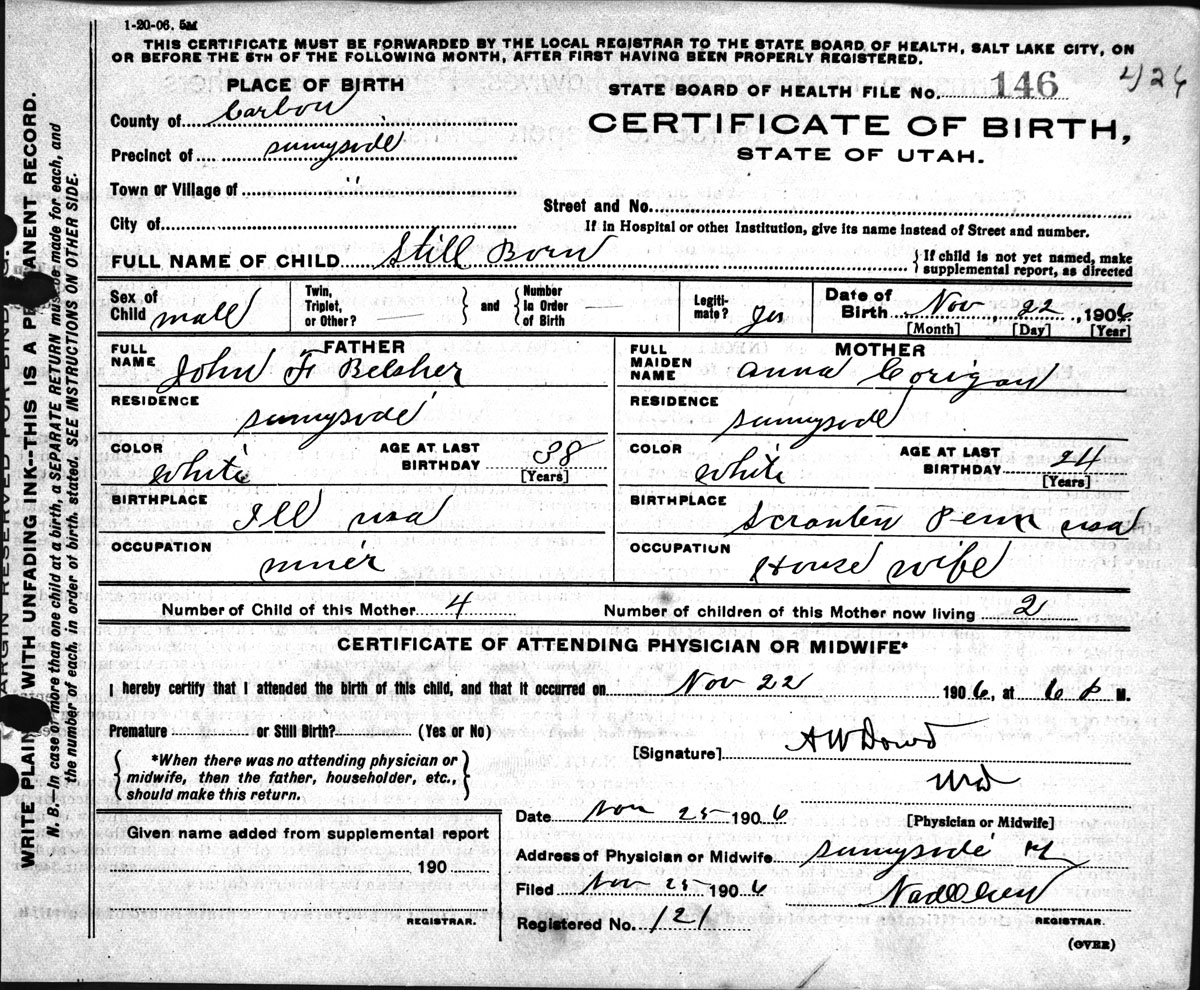 1-20-06. 5M
THIS CERTIFICATE MUST BE FORWARDED BY THE LOCAL REGISTRAR TO THE STATE BOARD OF HEALTH, SALT LAKE CITY, ON
OR BEFORE THE 5TH OF THE FOLLOWING MONTH, AFTER FIRST HAVING BEEN PROPERLY REGISTERED.
PLACE OF BIRTH
County of Carbon
Precinct of sunnyside
Town or Village of "
City of
STATE BOARD OF HEALTH FILE NO. 146 426
CERTIFICATE OF BIRTH,
STATE OF UTAH.
Street and No.
If in Hospital or other Institution, give its name instead of Street and number.
FULL NAME OF CHILD Still Born
{ If child is not yet named, make
supplemental report, as directed
Sex of Child male
Twin, Triplet, or Other? — } and { Number in Order of Birth
Legitimate? yes
Date of Birth Nov 22, 1906
[Month] [Day] [Year]
FATHER
FULL NAME John F Belsher
RESIDENCE sunnyside
COLOR White
AGE AT LAST BIRTHDAY 38
[Years]
BIRTHPLACE Ill usa
OCCUPATION miner
MOTHER
FULL MAIDEN NAME Anna Corigan
RESIDENCE sunnyside
COLOR White
AGE AT LAST BIRTHDAY 24
[Years]
BIRTHPLACE Scranten Penn usa
OCCUPATION House wife
Number of Child of this Mother 4
Number of children of this Mother now living 2
CERTIFICATE OF ATTENDING PHYSICIAN OR MIDWIFE*
I hereby certify that I attended the birth of this child, and that it occurred on Nov 22 1906, at 6 P M.
Premature or Still Birth? (Yes or No)
{ *When there was no attending physician or
midwife, then the father, householder, etc.,
should make this return. }
[Signature] A W Dowd
MD
[Physician or Midwife]
Date Nov 25 1906
Address of Physician or Midwife sunnyside
Filed Nov 25 1906
REGISTRAR.
Registered No. 121
(OVER)
Given name added from supplemental report
190
REGISTRAR.
MARGIN RESERVED FOR
WRITE PLAIN WITH UNFADING INK--THIS IS A PERMANENT RECORD.
N. B.—In case of more than one child at a birth, a SEPARATE RETURN must be made for each, and
the number of each, in order of birth, stated. SEE INSTRUCTIONS ON OTHER SIDE.